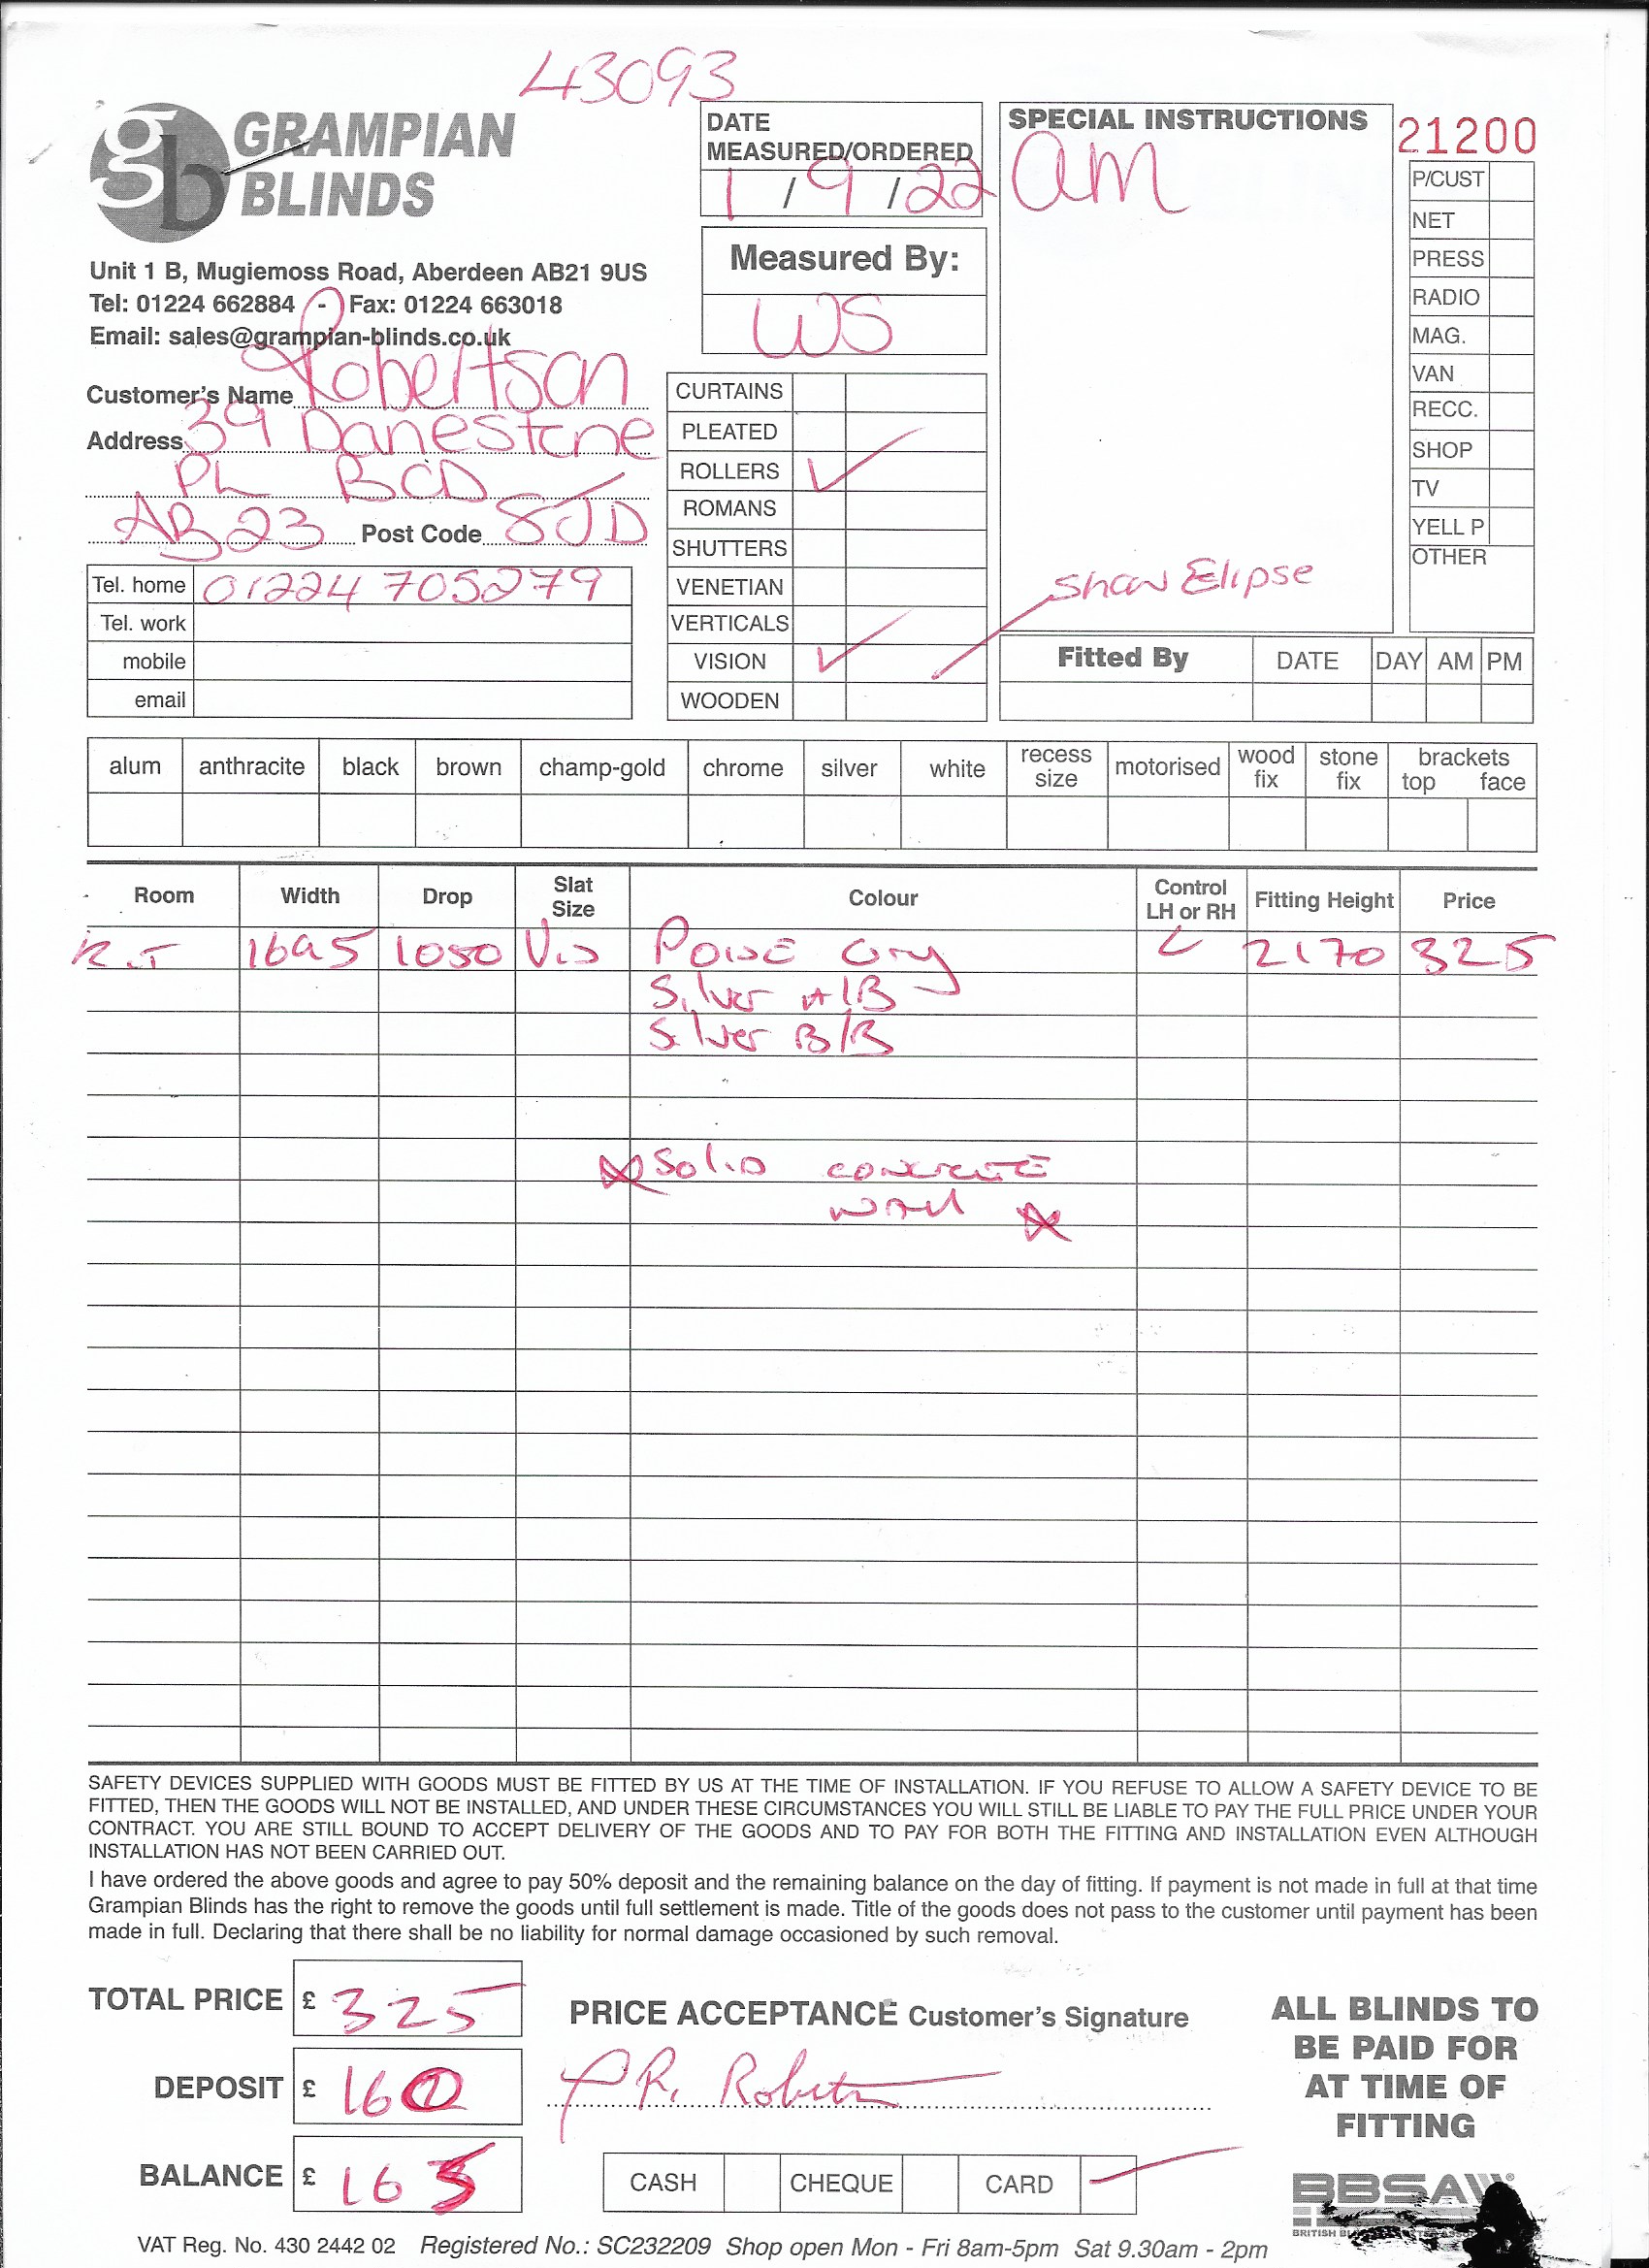 43093
GRAMPIAN
BLINDS
Unit 1 B, Mugiemoss Road, Aberdeen AB21 9US
Tel: 01224 662884 - Fax: 01224 663018
Email: sales@grampian-blinds.co.uk
Customer's Name Robertson
Address 39 Danestone
PL BOD
AB23 Post Code 8JD
Tel. home 01224 705279
Tel. work
mobile
email
DATE
MEASURED/ORDERED
1 / 9 / 22
Measured By:
WS
CURTAINS
PLEATED
ROLLERS ✓
ROMANS
SHUTTERS
VENETIAN
VERTICALS
VISION ✓
WOODEN
SPECIAL INSTRUCTIONS
am
Show Elipse
Fitted By DATE DAY AM PM
21200
P/CUST
NET
PRESS
RADIO
MAG.
VAN
RECC.
SHOP
TV
YELL P
OTHER
alum anthracite black brown champ-gold chrome silver white recess size motorised wood fix stone fix brackets top face
Room Width Drop Slat Size Colour Control LH or RH Fitting Height Price
K.T 1695 1050 Vis Poise Grey L 2170 325
Silver A/B
Silver B/B
Solid concrete
wall
SAFETY DEVICES SUPPLIED WITH GOODS MUST BE FITTED BY US AT THE TIME OF INSTALLATION. IF YOU REFUSE TO ALLOW A SAFETY DEVICE TO BE
FITTED, THEN THE GOODS WILL NOT BE INSTALLED, AND UNDER THESE CIRCUMSTANCES YOU WILL STILL BE LIABLE TO PAY THE FULL PRICE UNDER YOUR
CONTRACT. YOU ARE STILL BOUND TO ACCEPT DELIVERY OF THE GOODS AND TO PAY FOR BOTH THE FITTING AND INSTALLATION EVEN ALTHOUGH
INSTALLATION HAS NOT BEEN CARRIED OUT.
I have ordered the above goods and agree to pay 50% deposit and the remaining balance on the day of fitting. If payment is not made in full at that time
Grampian Blinds has the right to remove the goods until full settlement is made. Title of the goods does not pass to the customer until payment has been
made in full. Declaring that there shall be no liability for normal damage occasioned by such removal.
TOTAL PRICE £ 325
DEPOSIT £ 160
BALANCE £ 165
PRICE ACCEPTANCE Customer's Signature
R. Robertson
CASH CHEQUE CARD
ALL BLINDS TO
BE PAID FOR
AT TIME OF
FITTING
BBSA
BRITISH
VAT Reg. No. 430 2442 02 Registered No.: SC232209 Shop open Mon - Fri 8am-5pm Sat 9.30am - 2pm